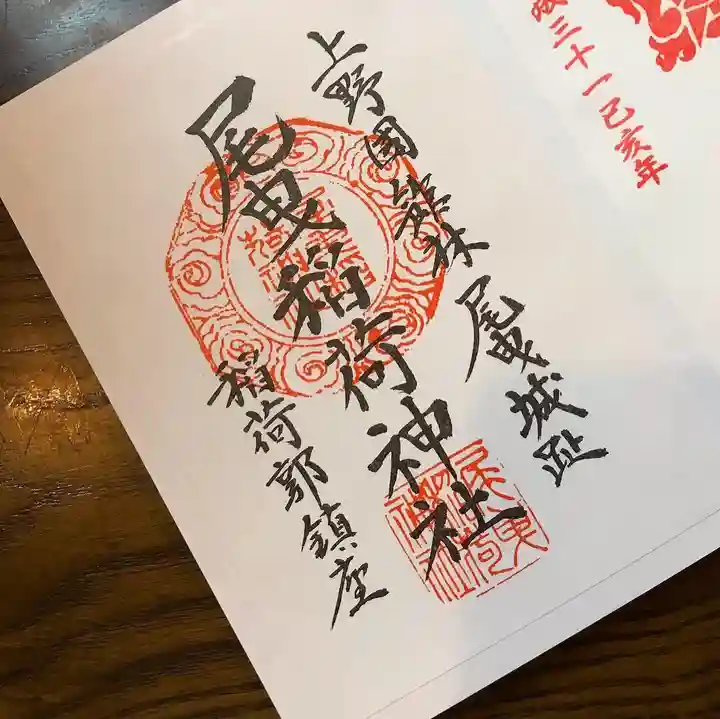 成三十一己亥年
上野國館林
尾曳城趾
尾曳稲荷神社
稲荷郭鎮座